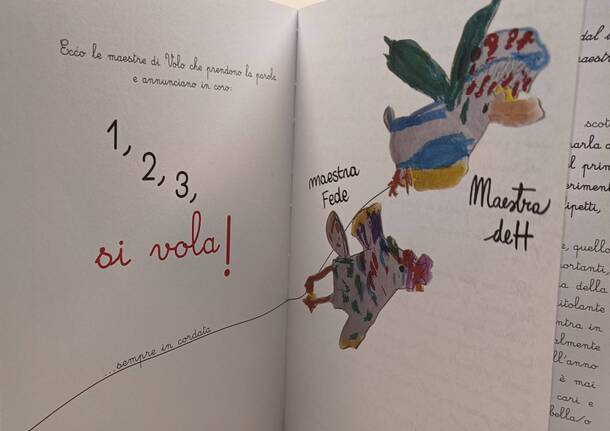 Ecco le maestre di Volo che prendono la parola
e annunciano in coro:
1,
2,
3,
si vola!
...sempre in cordata
maestra
Fede
Maestra
deH
dal i
scot
parla d
l prim
ipetti,
e, quello
ortanti,
a della
itolante
ntra in
almente
ll'anno
è mai
cari e
bella/o